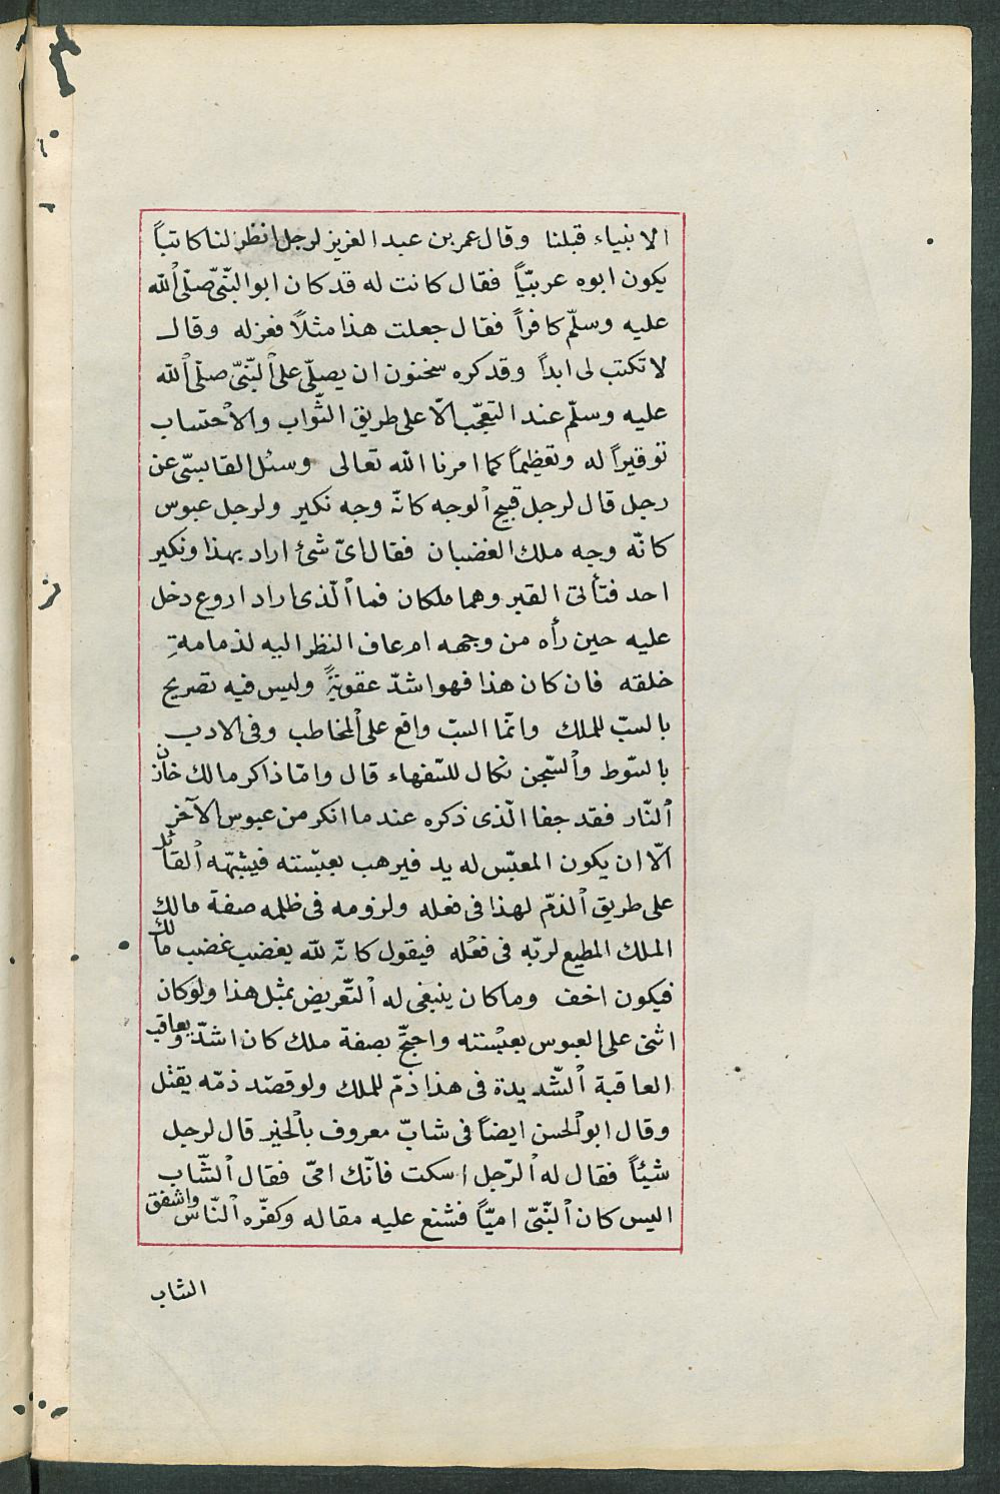 الانبياء قبلنا وقال عمر بن عبد العزيز لرجل انظر لنا كاتباً
يكون ابوه عربيّاً فقال كانت له قد كان ابو النّبىّ صلّى الله
عليه وسلّم كافراً فقال جعلت هذا مثلاً فعزله وقال
لا تكتب لى ابداً وقد كره سخنون ان يصلّى على النّبىّ صلّى الله
عليه وسلّم عند التعجّب الّا على طريق الثّواب والاحتساب
توقيراً له وتعظيماً كما امرنا الله تعالى وسئل القابسىّ عن
رجل قال لرجل قبيح الوجه كانّه وجه نكير ولرجل عبوس
كانّه وجه ملك الغضبان فقال اىّ شئ اراد بهذا ونكير
احد فتأنى القبر وهما ملكان فما الّذى اراد اروع دخل
عليه حين رأه من وجهه ام عاف النظر اليه لذمامةِ
خلقه فان كان هذا فهو اشدّ عقوبةً وليس فيه تصريح
بالسبّ للملك وانّما السبّ واقع على المخاطب وفى الادب
بالسّوط والسّجن نكال للسّفهاء قال وامّا ذاكر مالك خازن
النّار فقد جفا الّذى ذكره عند ما انكر من عبوس الآخر
الّا ان يكون المعبّس له يد فيرهب بعبّسته فيشبّهه القائل
على طريق الذمّ لهذا فى فعله ولزومه فى ظلمه صفة مالك
الملك المطيع لربّه فى فعله فيقول كانّه لله يغضب غضب مالك
فيكون اخف وما كان ينبغى له التّعريض بمثل هذا ولو كان
اثنى على العبوس بعبسته واحجّ بصفة ملك كان اشدّ ويعاقب
العاقبة الشّديدة فى هذا ذمّ للملك ولو قصّد ذمّه يقتل
وقال ابو الحسن ايضاً فى شابّ معروف بالخير قال لرجل
شيئاً فقال له الرّجل اسكت فانّك امىّ فقال الشّاب
اليس كان النّبىّ اميّاً فشنع عليه مقاله وكفّره النّاس واشفق
الشاب